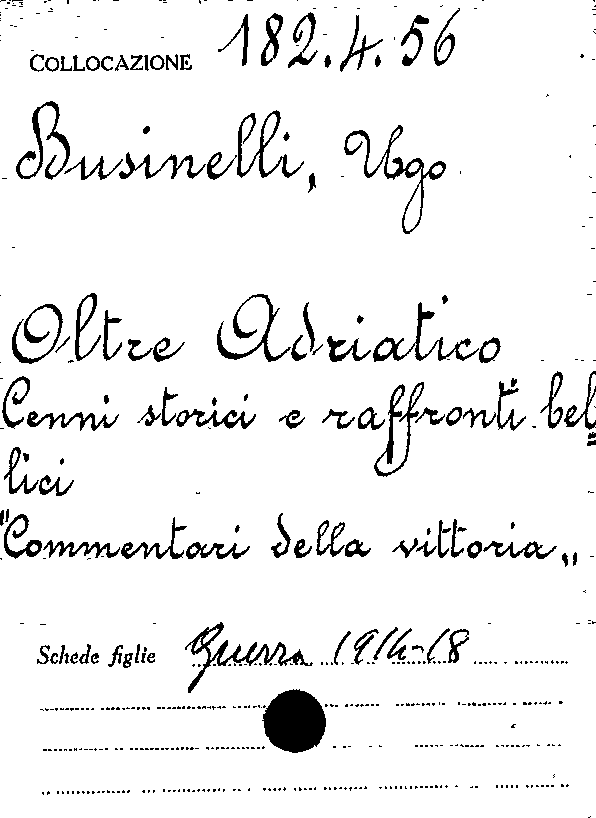 COLLOCAZIONE 182.4.56
Businelli, Ugo
Oltre Adriatico
Cenni storici e raffronti bel=
lici
"Commentari della vittoria„
Schede figlie Guerra 1914-18